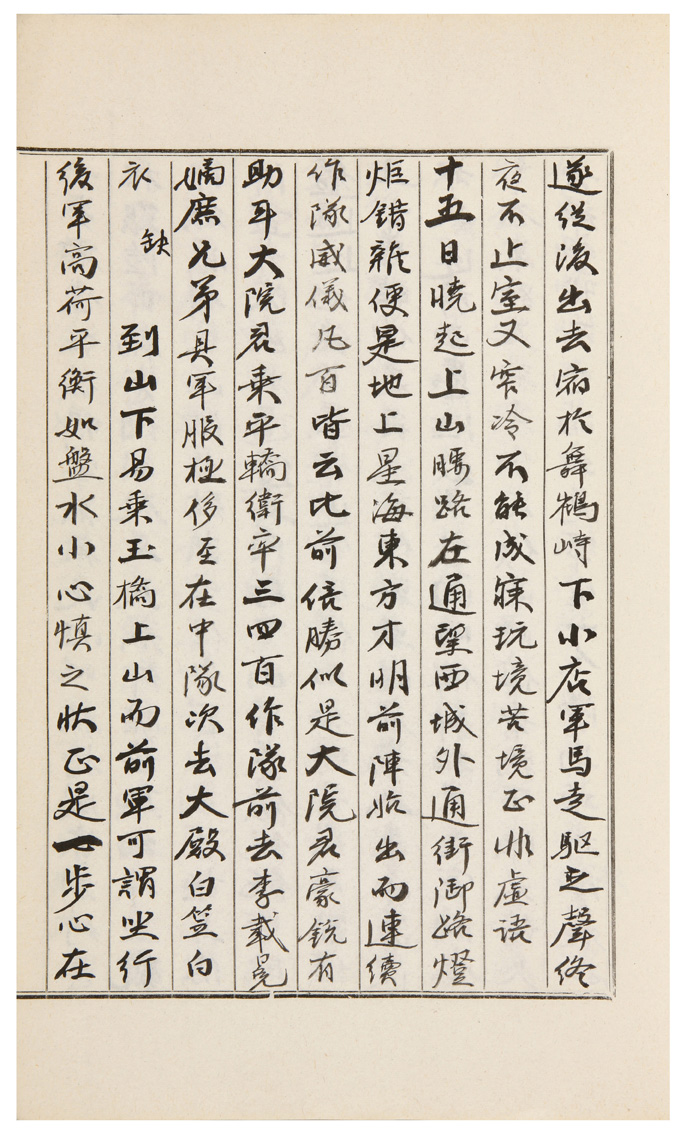 遂從後出去宿於舞鶴峙下小店軍馬走驅之聲終
夜不止室又窄冷不能成寐玩境苦境正非虛語
十五日曉起上山腰路在通望西城外通街御路燈
炬錯雜便是地上星海東方才明前陣始出而連續
作隊威儀凡百皆云比前倍勝似是大院君豪銳有
助耳大院君乘平轎衛卒三四百作隊前去李載冕
嫡庶兄弟具軍服極侈至在中隊次去大殿白笠白
衣
缺
到山下易乘玉橋上山而前軍可謂坐行
後軍高荷平衡如盤水小心慎之狀正是一步心在